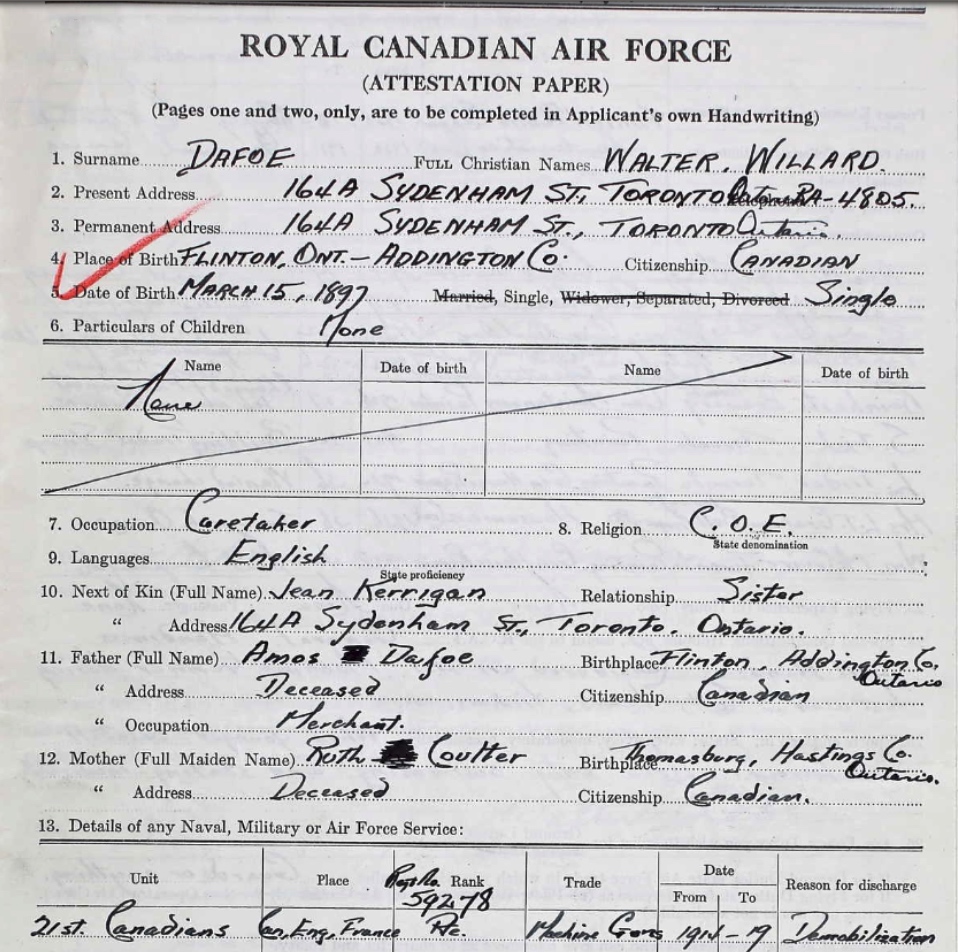 ROYAL CANADIAN AIR FORCE
(ATTESTATION PAPER)
(Pages one and two, only, are to be completed in Applicant's own Handwriting)
1. Surname DAFOE FULL Christian Names WALTER. WILLARD.
2. Present Address 164A SYDENHAM ST., TORONTO RA-4805.
3. Permanent Address 164A SYDENHAM ST., TORONTO Ontario.
4. Place of Birth FLINTON, ONT.- ADDINGTON Co. Citizenship CANADIAN
5. Date of Birth MARCH 15, 1897 Married, Single, Widower, Separated, Divorced Single
6. Particulars of Children None
Name Date of birth Name Date of birth
None
7. Occupation Caretaker 8. Religion C. O. E.
State denomination
9. Languages English
State proficiency
10. Next of Kin (Full Name) Jean Kerrigan Relationship Sister
" Address 164A Sydenham St., Toronto. Ontario.
11. Father (Full Name) Amos Dafoe Birthplace Flinton, Addington Co. Ontario
" Address Deceased Citizenship Canadian
" Occupation Merchant.
12. Mother (Full Maiden Name) Ruth Coulter Birthplace Thomasburg, Hastings Co. Ontario.
" Address Deceased Citizenship Canadian.
13. Details of any Naval, Military or Air Force Service:
Unit Place Regt No. 59278 Rank Trade Date From To Reason for discharge
21st. Canadians Can, Eng, France Pte. Machine Guns 1914-19 Demobilization